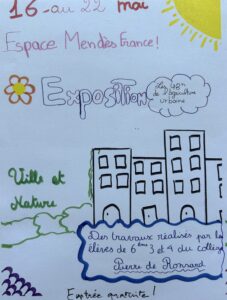 16 au 22 mai
Espace Mendès France!
Exposition
Les 48h
de l'agriculture
urbaine
Ville et
Nature
Des travaux réalisés par les
élèves de 6ème 3 et 4 du collège
Pierre de Ronsard
Entrée gratuite!